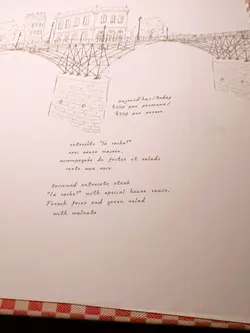 aujourd'hui/today
per person.
entrecôte "la vache!"
avec sauce maison,
accompagnée de frites et salade
verte aux noix
trimmed entrecote steak
"la vache!" with special house sauce,
French fries and green salad
with walnuts